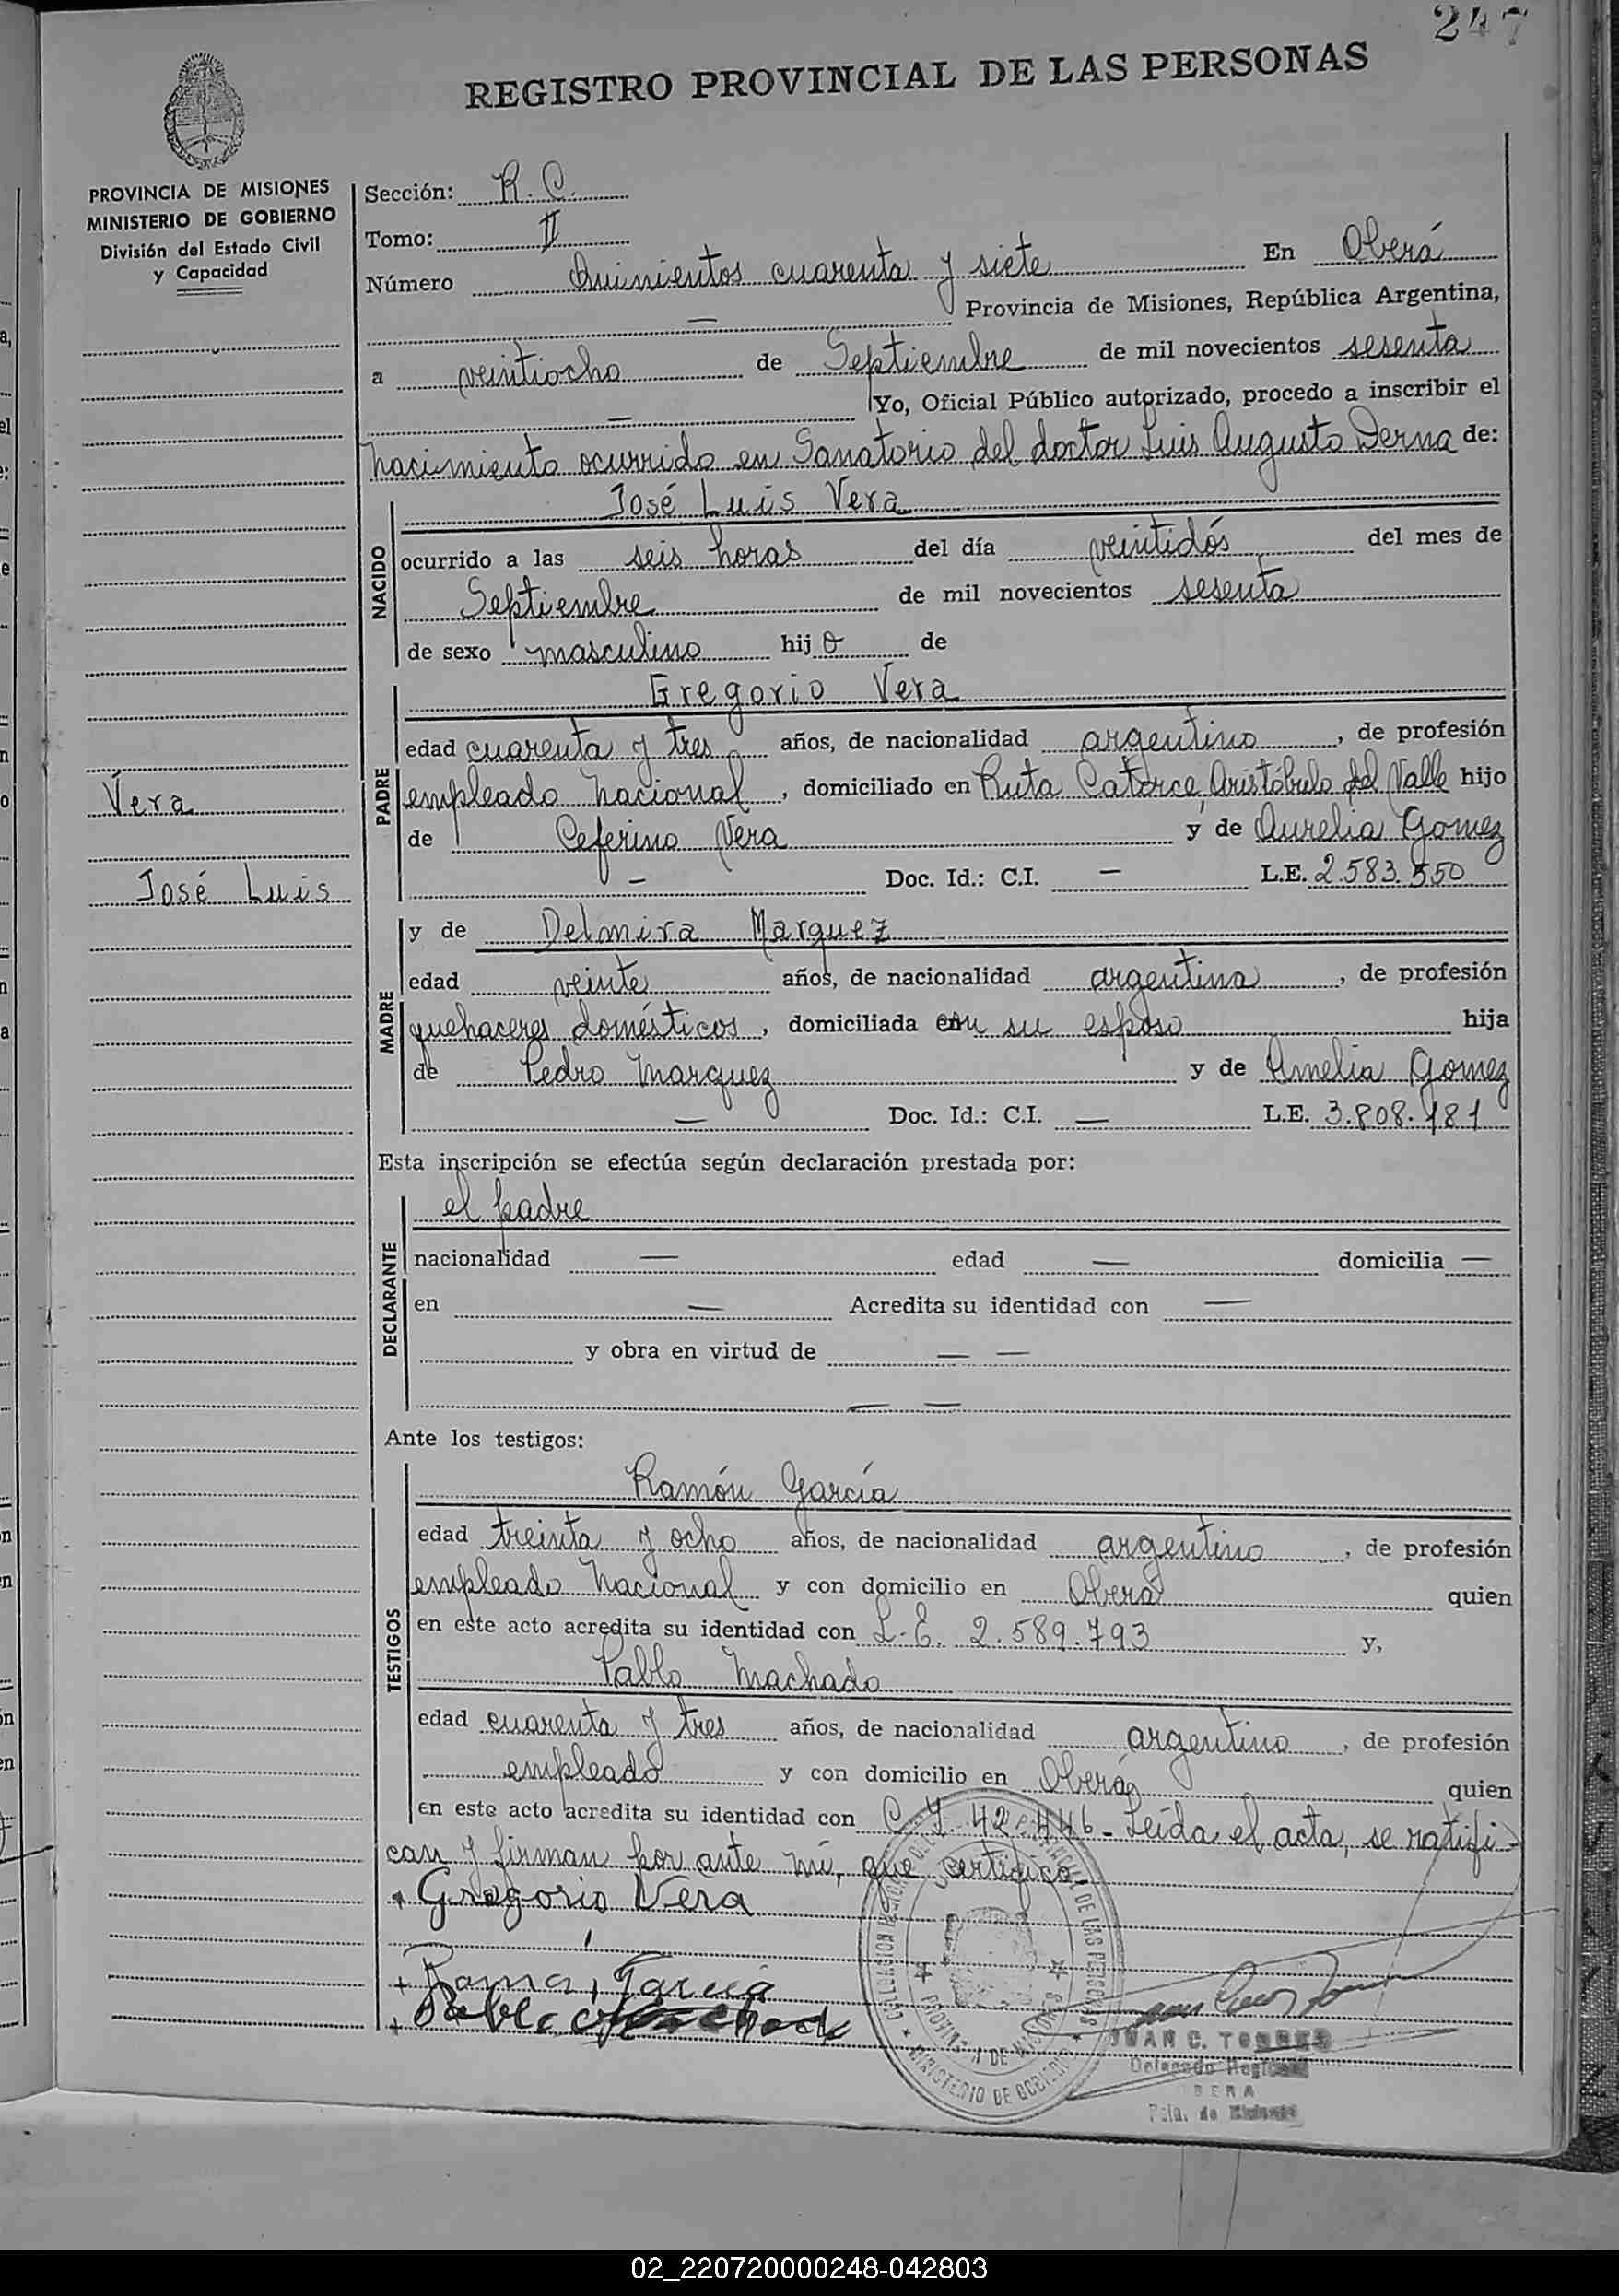 247
REGISTRO PROVINCIAL DE LAS PERSONAS
PROVINCIA DE MISIONES
MINISTERIO DE GOBIERNO
División del Estado Civil
y Capacidad
Sección: R. C.
Tomo: II
Número Quinientos cuarenta y siete En Oberá
— Provincia de Misiones, República Argentina,
a veintiocho de Septiembre de mil novecientos sesenta
— Yo, Oficial Público autorizado, procedo a inscribir el
nacimiento ocurrido en Sanatorio del doctor Luis Augusto Derna de:
NACIDO
José Luis Vera
ocurrido a las seis horas del día veintidós del mes de
Septiembre de mil novecientos sesenta
de sexo masculino hijo de
PADRE
Gregorio Vera
edad cuarenta y tres años, de nacionalidad argentino, de profesión
empleado nacional, domiciliado en Ruta Catorce, Aristóbulo del Valle hijo
de Ceferino Vera y de Aurelia Gomez
— Doc. Id.: C.I. — L.E. 2.583.550
Vera
José Luis
MADRE
y de Delmira Marquez
edad veinte años, de nacionalidad argentina, de profesión
quehaceres domésticos, domiciliada con su esposo hija
de Pedro Marquez y de Amelia Gomez
— Doc. Id.: C.I. — L.E. 3.808.181
Esta inscripción se efectúa según declaración prestada por:
DECLARANTE
el padre
nacionalidad — edad — domicilia —
en — Acredita su identidad con —
y obra en virtud de — —
— —
Ante los testigos:
TESTIGOS
Ramón García
edad treinta y ocho años, de nacionalidad argentino, de profesión
empleado Nacional y con domicilio en Oberá quien
en este acto acredita su identidad con L.E. 2.589.793 y,
Pablo Machado
edad cuarenta y tres años, de nacionalidad argentino, de profesión
empleado y con domicilio en Oberá quien
en este acto acredita su identidad con C.I. 42.446 - Leida el acta, se ratifi-
can y firman por ante mí, que certifico
Gregorio Vera
Ramon Garcia
Pablo Machado
JUAN C. TORRES
Delegado Regional
02_220720000248-042803